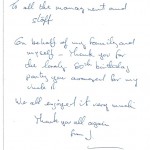 To all the management and
staff
On behalf of my family and
myself - thank you for
the lovely 80th birthday
party you arranged for my
uncle
We all enjoyed it very much
Thank you all again
from